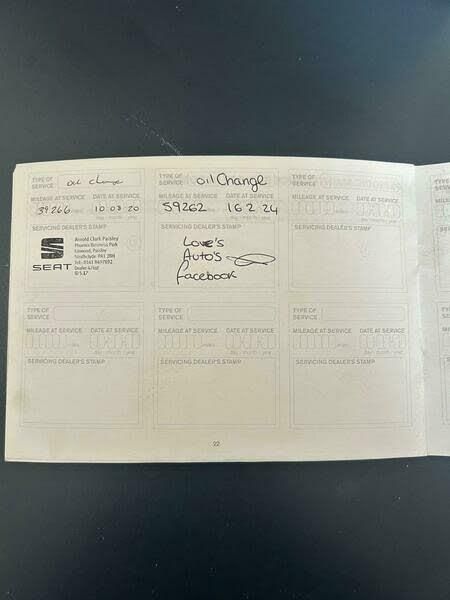 TYPE OF SERVICE oil change
MILEAGE AT SERVICE DATE AT SERVICE
39266 miles 10 03 20
day month year
SERVICING DEALER'S STAMP
SEAT
Arnold Clark Paisley
Phoenix Business Park
Linwood, Paisley
Strathclyde PA1 2BH
TYPE OF SERVICE oil Change
MILEAGE AT SERVICE DATE AT SERVICE
59262 miles 16 2 24
day month year
SERVICING DEALER'S STAMP
Love's
Auto's
facebook
TYPE OF SERVICE
MILEAGE AT SERVICE DATE AT SERVICE
miles
day month year
SERVICING DEALER'S STAMP
TYPE OF SERVICE
MILEAGE AT SERVICE DATE AT SERVICE
miles
day month year
SERVICING DEALER'S STAMP
TYPE OF SERVICE
MILEAGE AT SERVICE DATE AT SERVICE
miles
day month year
SERVICING DEALER'S STAMP
TYPE OF SERVICE
MILEAGE AT SERVICE DATE AT SERVICE
miles
day month year
SERVICING DEALER'S STAMP
22